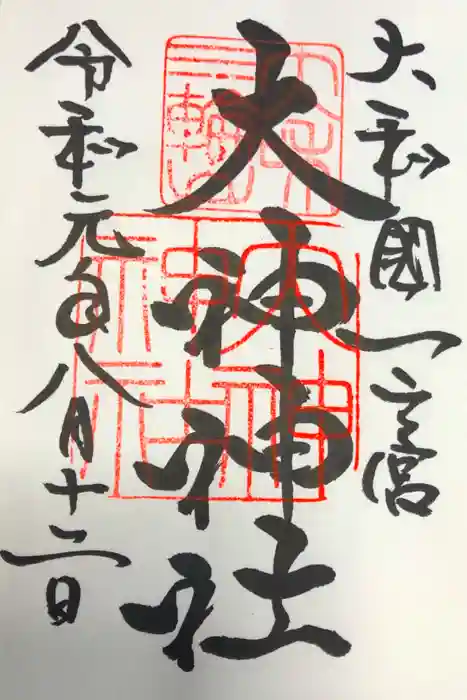 大和國一之宮
大神神社
大神
神社
令和元年八月十二日